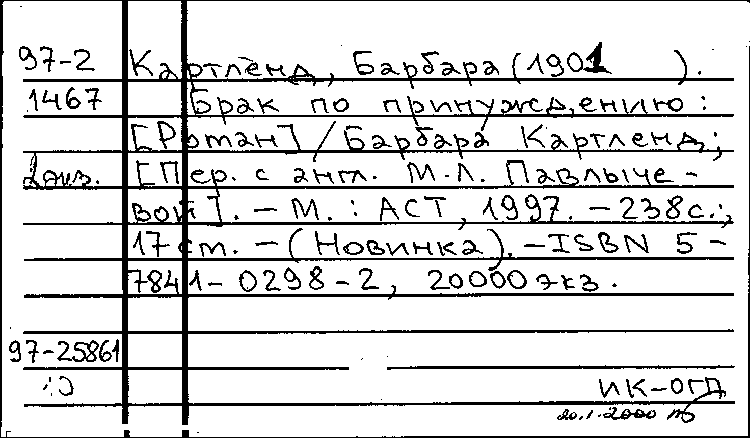 97-2 Картленд, Барбара (1901 ).
1467 Брак по принуждению:
[Роман] / Барбара Картленд;
2 экз. [Пер. с англ. М.Л. Павлыче-
вой]. – М. : АСТ, 1997. – 238 с.;
17 см. – (Новинка). – ISBN 5-
7841-0298-2, 20000 экз.
97-25861
ИК-ОГД
20.1.2000